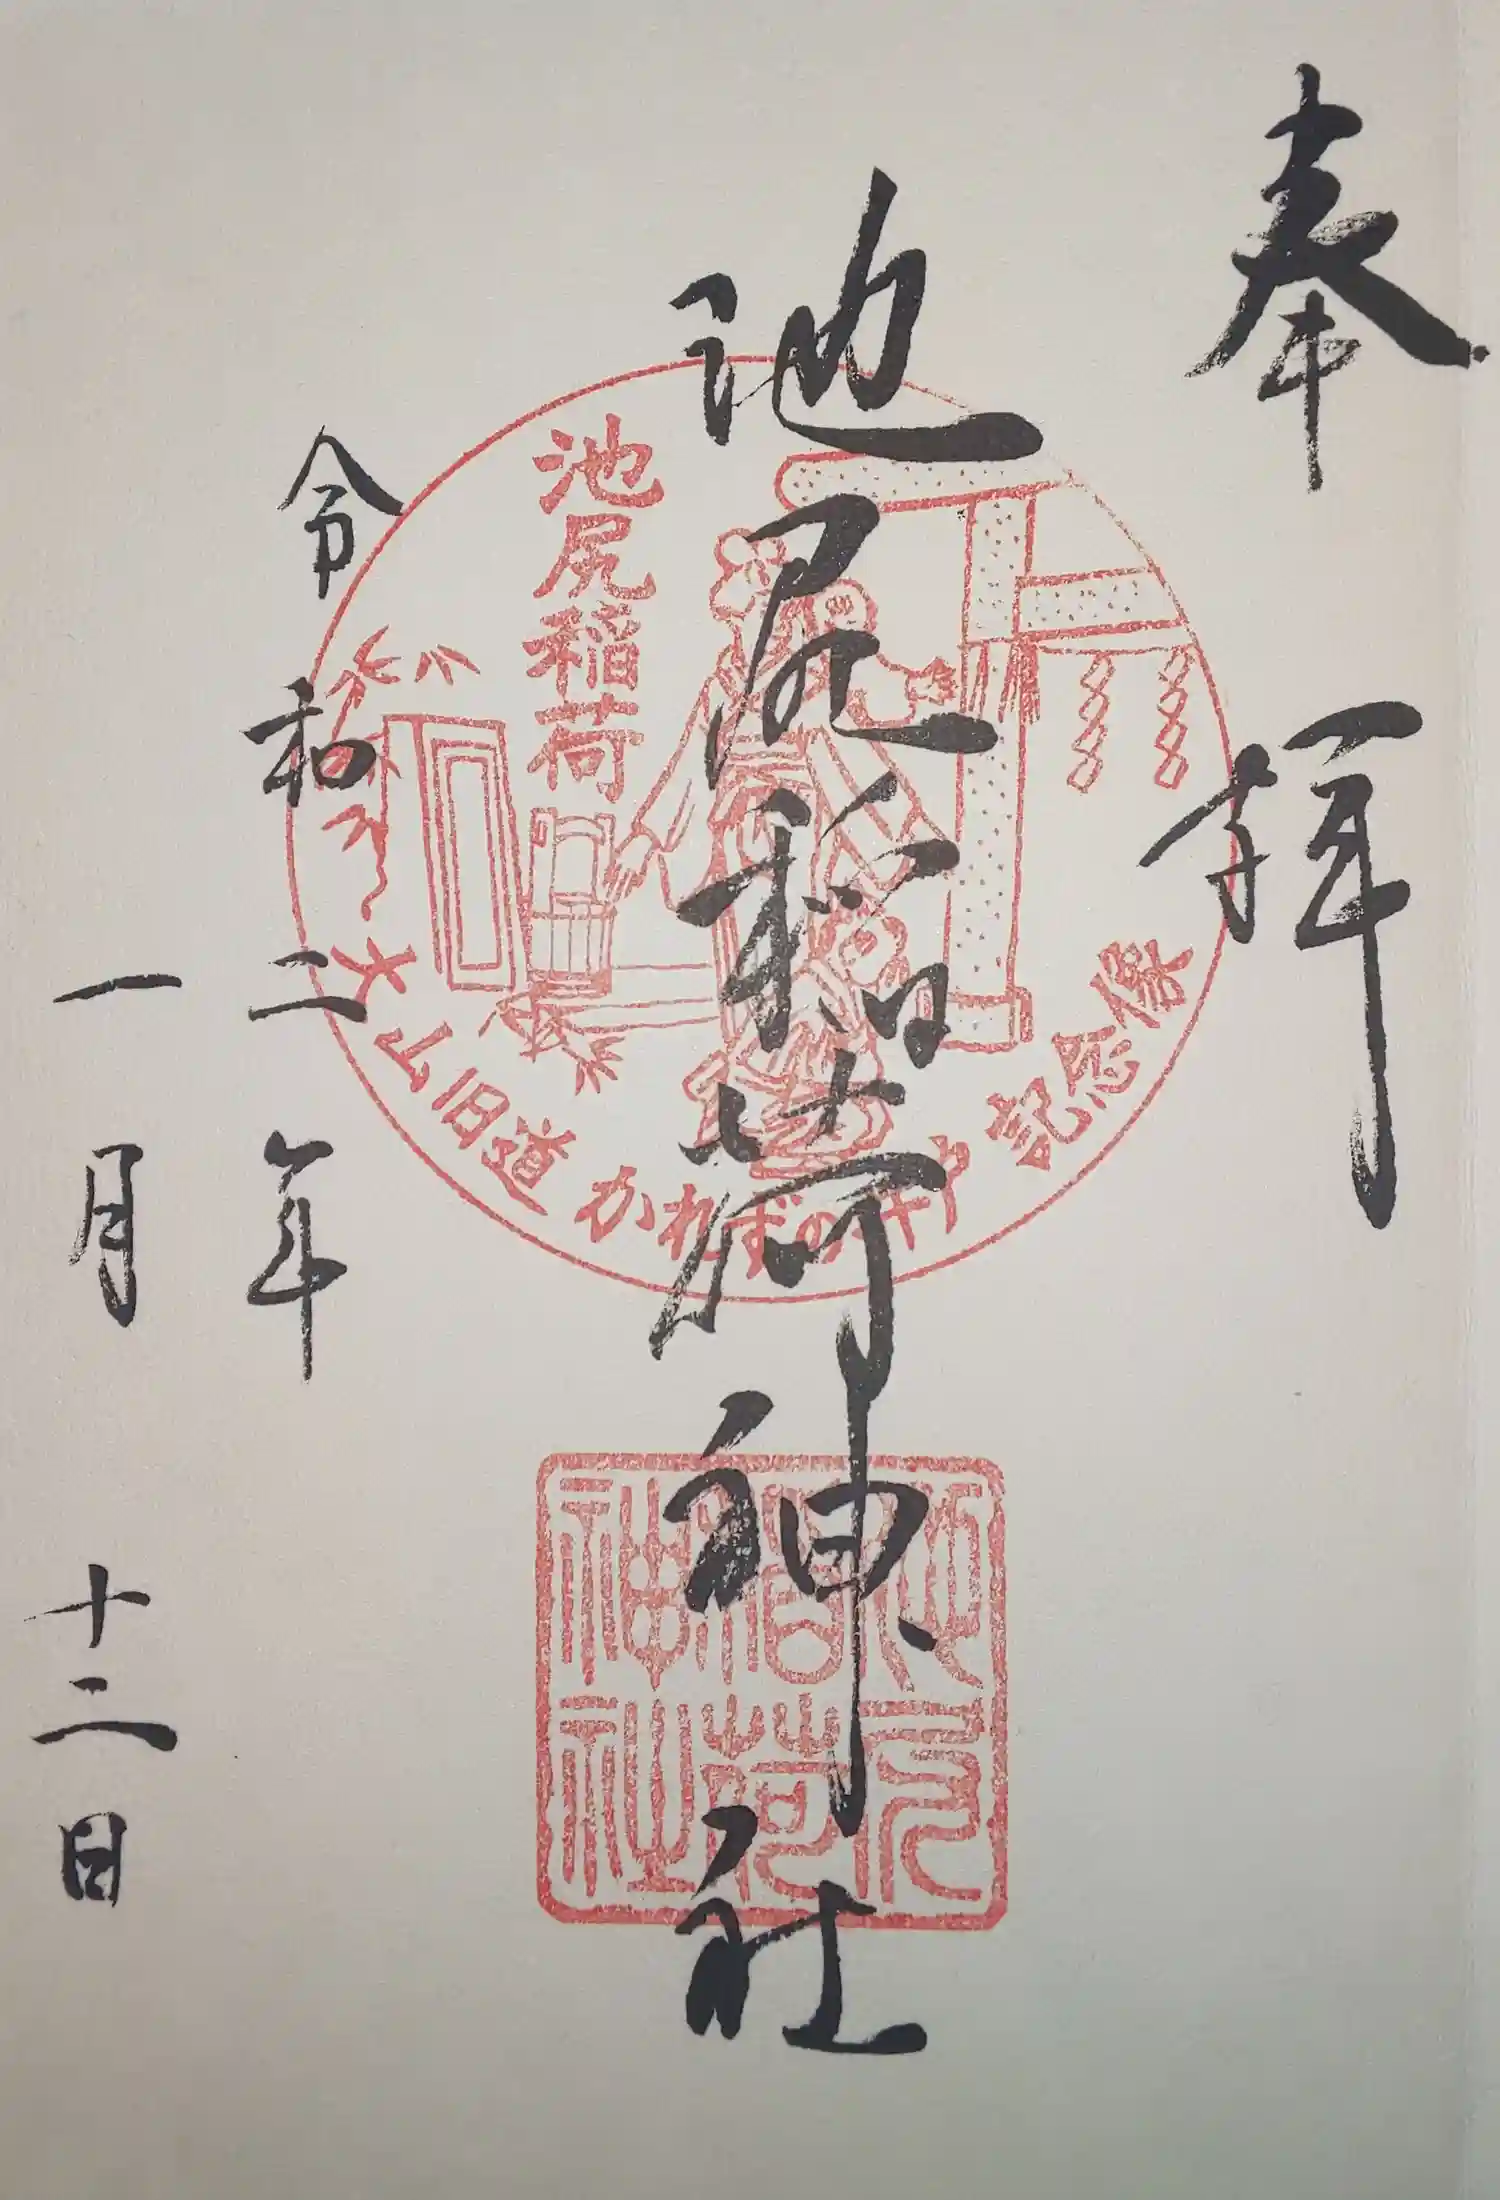 奉拝
池尻稲荷神社
令和二年
一月十二日
池尻稲荷
大山旧道かれずの井戸記念保
池尻
稲荷
神社